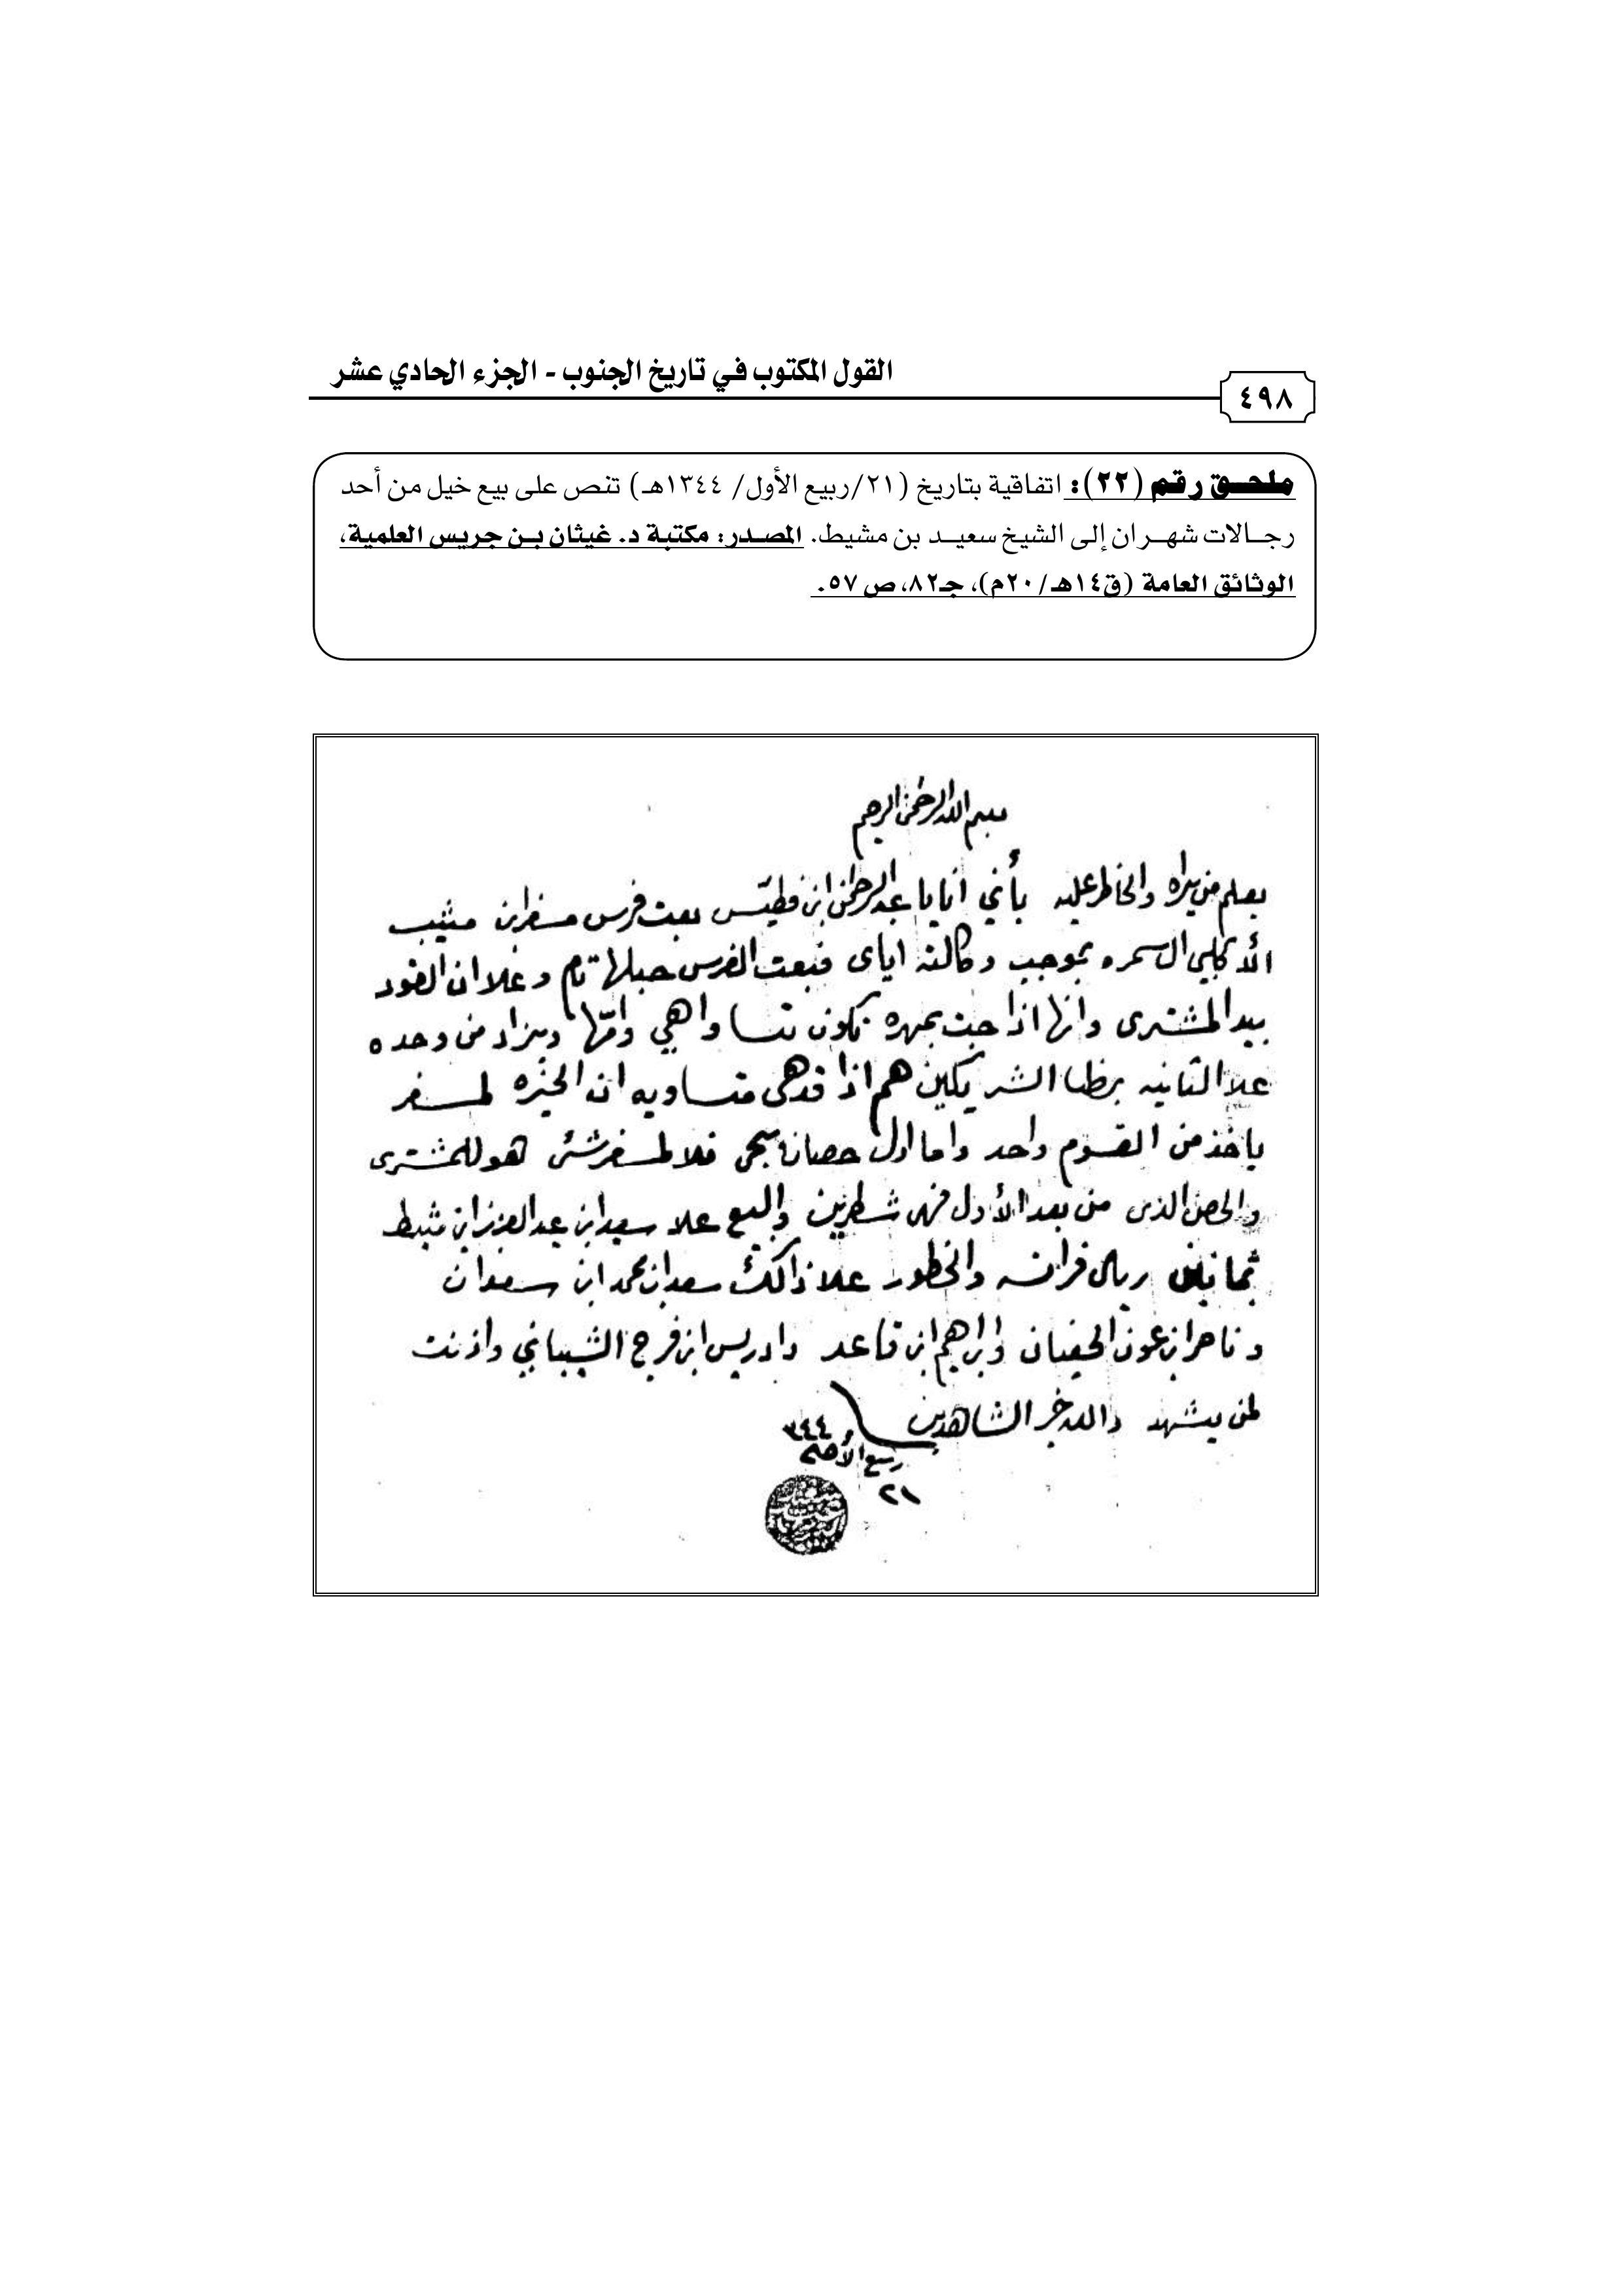 القول المكتوب في تاريخ الجنوب - الجزء الحادي عشر
٤٩٨
ملحق رقم (٢٢): اتفاقية بتاريخ (٢١/ربيع الأول/ ١٣٤٤هـ) تنص على بيع خيل من أحد
رجالات شهران إلى الشيخ سعيد بن مشيط. المصدر: مكتبة د. غيثان بن جريس العلمية،
الوثائق العامة (ق١٤هـ/٢٠م)، جـ٨٢، ص٥٧.
بسم الله الرحمن الرحيم
يعلم من يراه والخاطر عليه بأني انايا عبدالرحمن ابن فطيس بعت فرس مسفر ابن مثيب
السمره بموجب وكالته اياى فبعت الفرس حبلها تام وعلا ان القود
بيد المشترى وانها اذا جبت بمهره تكون تتساوا هي وامّها ويزاد من وحده
علا الثانيه برظا الشريكين هم اذا قدهى متساويه ان الخيره لمسفر
ياخذ من القسوم واحد واما اول حصان يجى فلا لمسفر شئ هو للمشترى
والحصن الذى من بعد الأول فهى شطرين والبيع علا سعيد ابن عبدالعزيز ابن مشيط
ثمانين ريال فرانسه والحظور علا ذالك سعد ابن محمد ابن سعدان
وناصر ابن عون وابراهيم ابن قاعد وادريس ابن فرج الشيباني واذنت
لمن يشهد والله خير الشاهدين
٣٤٤
ربيع الأول
٢١